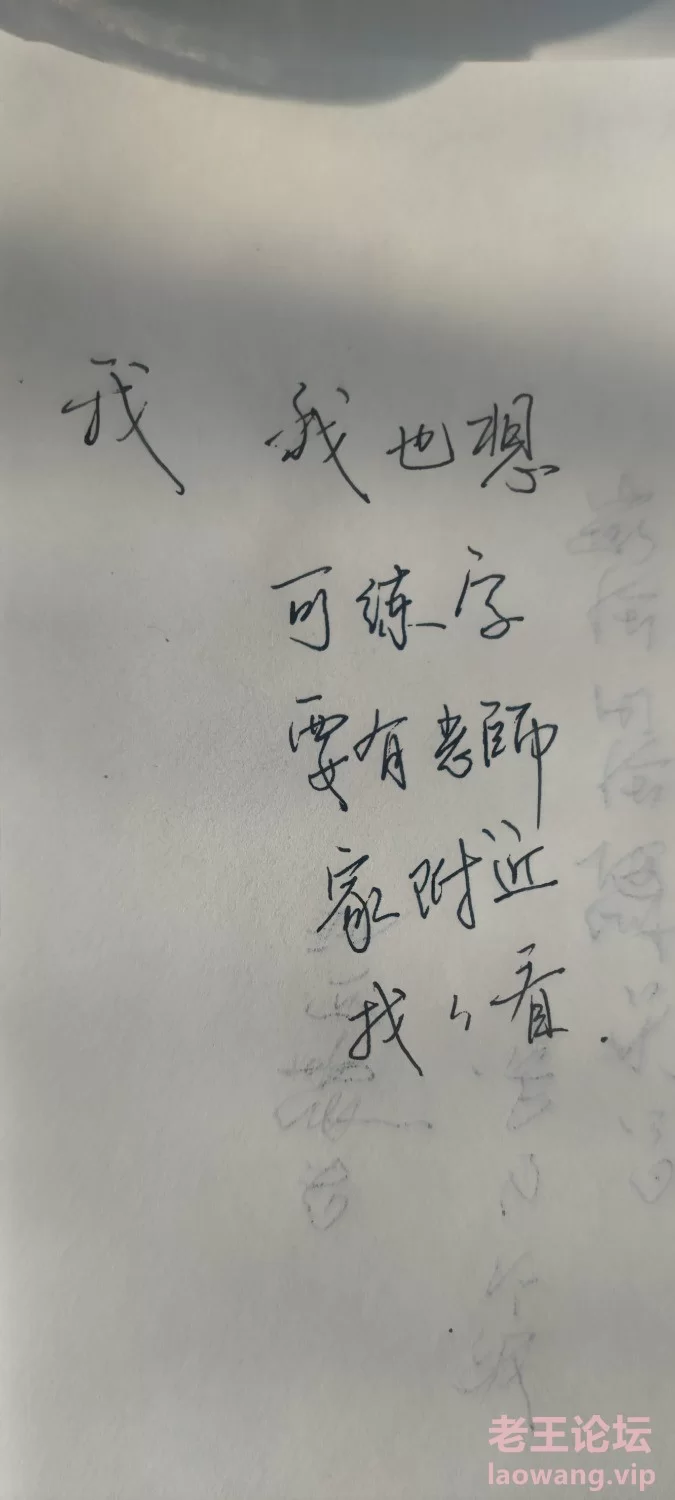 我 我也想
可练字
要有老師
家附近
找々看.
老王论坛
laowang.vip